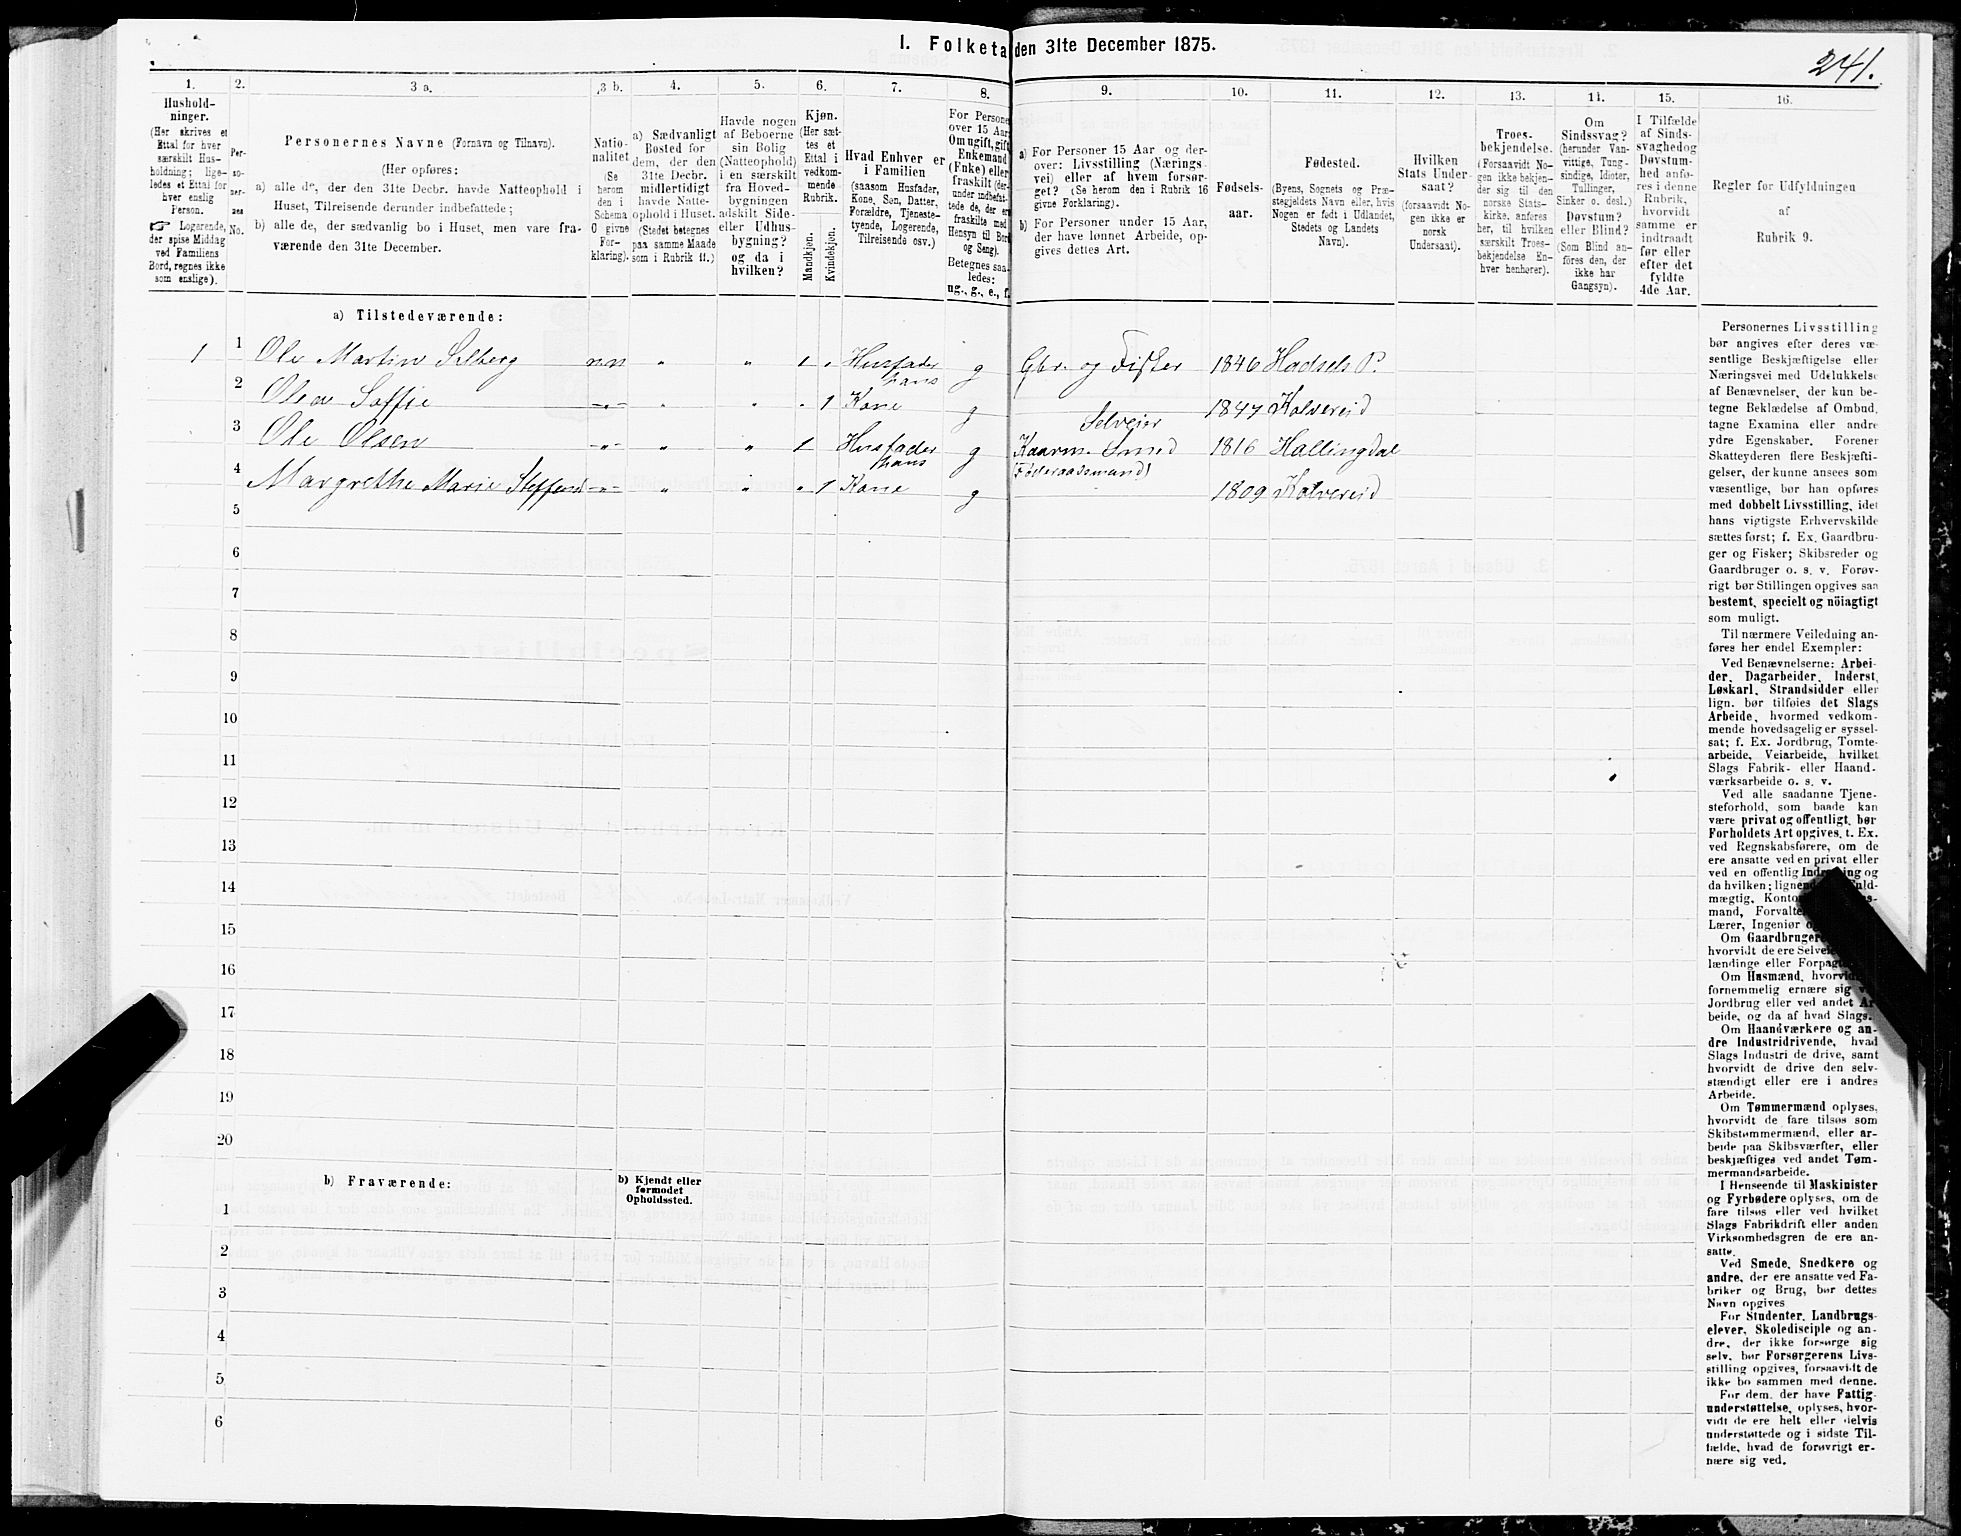 I. Folketa den 31te December 1875.
241.
1.
Hushold-
ninger.
(Her skrives et
Ettal for hver
særskilt Hus-
holdning; lige-
ledes et Ettal for
hver enslig
Person.
☞ Logerende,
der spise Middag
ved Familiens
Bord, regnes ikke
som enslige).
2.
Per-
so-
ner-
nes
No.
3 a.
Personernes Navne (Fornavn og Tilnavn).
(Her opføres:
a) alle de, der den 31te Decbr. havde Natteophold i
Huset, Tilreisende derunder indbefattede;
b) alle de, der sædvanlig bo i Huset, men vare fra-
værende den 31te December.
3 b.
Natio-
nalitet
(Se
herom
den i
Schema
O givne
For-
klaring).
4.
a) Sædvanligt
Bosted for
dem, der den
31te Decbr.
midlertidigt
havde Natte-
ophold i Huset.
(Stedet betegnes
paa samme Maade
som i Rubrik 11.)
5.
Havde nogen
af Beboerne
sin Bolig
(Natteophold)
i en særskilt
fra Hoved-
bygningen
adskilt Side-
eller Udhus-
bygning?
og da i
hvilken?
6.
Kjøn.
(Her sæt-
tes et
Ettal i
vedkom-
mende
Rubrik.
Mandkjøn.
Kvindekjøn.
7.
Hvad Enhver er
i Familien
(saasom Husfader,
Kone, Søn, Datter,
Forældre, Tjeneste-
tyende, Logerende,
Tilreisende osv.)
8.
For Persone
over 15 Aar
Om ugift, gift
Enkemand
(Enke) eller
fraskilt (der-
under indbefat-
tede de, der er
fraskilte med
Hensyn til Bord
og Seng).
Betegnes saa-
ledes:
ug., g., e., f.
9.
a) For Personer 15 Aar og der-
over: Livsstilling (Nærings-
vei) eller af hvem forsør-
get? (Se herom den i Rubrik 16
givne Forklaring.)
b) For Personer under 15 Aar,
der have lønnet Arbeide, op-
gives dettes Art.
10.
Fødsels-
aar.
11.
Fødested.
(Byens, Sognets og Præ-
stegjeldets Navn eller, hvis
Nogen er født i Udlandet,
Stedets og Landets
Navn).
12.
Hvilken
Stats Under-
saat?
(forsaavidt No-
gen ikke er
norsk
Undersaat).
13.
Troes-
bekjendelse.
(Forsaavidt No-
gen ikke bekjen-
der sig til den
norske Stats-
kirke, anføres
her, til hvilken
særskilt Troes-
bekjendelse En-
hver henhører).
14.
Om
Sindssvag?
(herunder Van-
vittige, Tung-
sindige, Idioter,
Tullinger,
Sinker o. desl.)
Døvstum?
eller Blind?
(Som Blind an-
føres den, der
ikke har
Gangsyn).
15.
I Tilfælde
af Sinds-
svaghed og
Døvstum-
hed anfø-
res i denne
Rubrik,
hvorvidt
samme er
indtraadt
før eller
efter det
fyldte
4de Aar.
16.
Regler for Udfyldningen
af
Rubrik 9.
a) Tilstedeværende:
1 1 Ole Martin Selberg n.n " " 1 " Husfader g Gbr. og Fisker 1846 Hadsels P.
2 Olea Soffie -"- " " " 1 hans Kone g Selveier 1847 Kolvereid
3 Ole Olsen -"- " " 1 Husfader g Kaarm. Smed 1816 Hallingdal
4 Margrethe Marie Steffensd -"- " " " 1 hans Kone g (Føderaadsmand) 1809 Kolvereid
5
6
7
8
9
10
11
12
13
14
15
16
17
18
19
20
b) Fraværende:
b) Kjendt eller
formodet
Opholdssted.
1
2
3
4
5
6
Personernes Livsstilling
bør angives efter deres væ-
sentlige Beskjæftigelse eller
Næringsvei med Udelukkelse
af Benævnelser, der kun be-
tegne Beklædelse af Ombud,
tagne Examina eller andre
ydre Egenskaber. Forener
Skatteyderen flere Beskjæfti-
gelser, der kunne ansees som
væsentlige, bør han opføres
med dobbelt Livsstilling, idet
hans vigtigste Erhvervskilde
sættes først; f. Ex. Gaardbru-
ger og Fisker; Skibsreder og
Gaardbruger o. s. v. Forøv-
rigt bør Stillingen opgives saa
bestemt, specielt og nöiagtigt
som muligt.
Til nærmere Veiledning an-
føres her endel Exempler:
Ved Benævnelserne: Arbei-
der, Dagarbeider, Inderst,
Løskarl, Strandsidder eller
lign. bør tilføies det Slags
Arbeide, hvormed vedkom-
mende hovedsagelig er syssel-
sat; f. Ex. Jordbrug, Tomte-
arbeide, Veiarbeide, hvilket
Slags Fabrik- eller Haand-
værksarbeide o. s. v.
Ved alle saadanne Tjene-
steforhold, som baade kan
være privat og offentligt, bør
Forholdets Art opgives, t. Ex.
ved Regnskabsførere, om de
ere ansatte ved en privat eller
ved en offentlig Indretning og
da hvilken; lignende Fuld-
mægtig, Kontor
mand, Forvalter
Lærer, Ingeniør
Om Gaardbrugere
hvorvidt de ere Selveiere
lændinge eller Forpagtere
Om Husmænd, hvorvidt
fornemmelig ernære sig ved
Jordbrug eller ved andet Ar-
beide, og da af hvad Slags.
Om Haandværkere og an-
dre Industridrivende, hvad
Slags Industri de drive, samt
hvorvidt de drive den selv-
stændigt eller ere i andres
Arbeide.
Om Tømmermænd oplyses,
hvorvidt de fare tilsøs som
Skibstømmermænd, eller ar-
beide paa Skibsværfter, eller
beskjæftiges ved andet Tøm-
mermandsarbeide.
I Henseende til Maskinister
og Fyrbødere oplyses, om de
fare tilsøs eller ved hvilket
Slags Fabrikdrift eller anden
Virksomhedsgren de ere an-
satte.
Ved Smede, Snedkere og
andre, der ere ansatte ved Fa-
briker og Brug, bør dettes
Navn opgives
For Studenter, Landbrugs-
elever, Skoledisciple og an-
dre, der ikke forsørge sig
selv, bør Forsørgerens Livs-
stilling opgives, forsaavidt de
ikke bo sammen med denne.
For dem, der have Fattig-
understøttelse, oplyses, hvor-
vidt de ere helt eller delvis
understøttede og i sidste Til-
fælde, hvad de forøvrigt er-
nære sig ved.